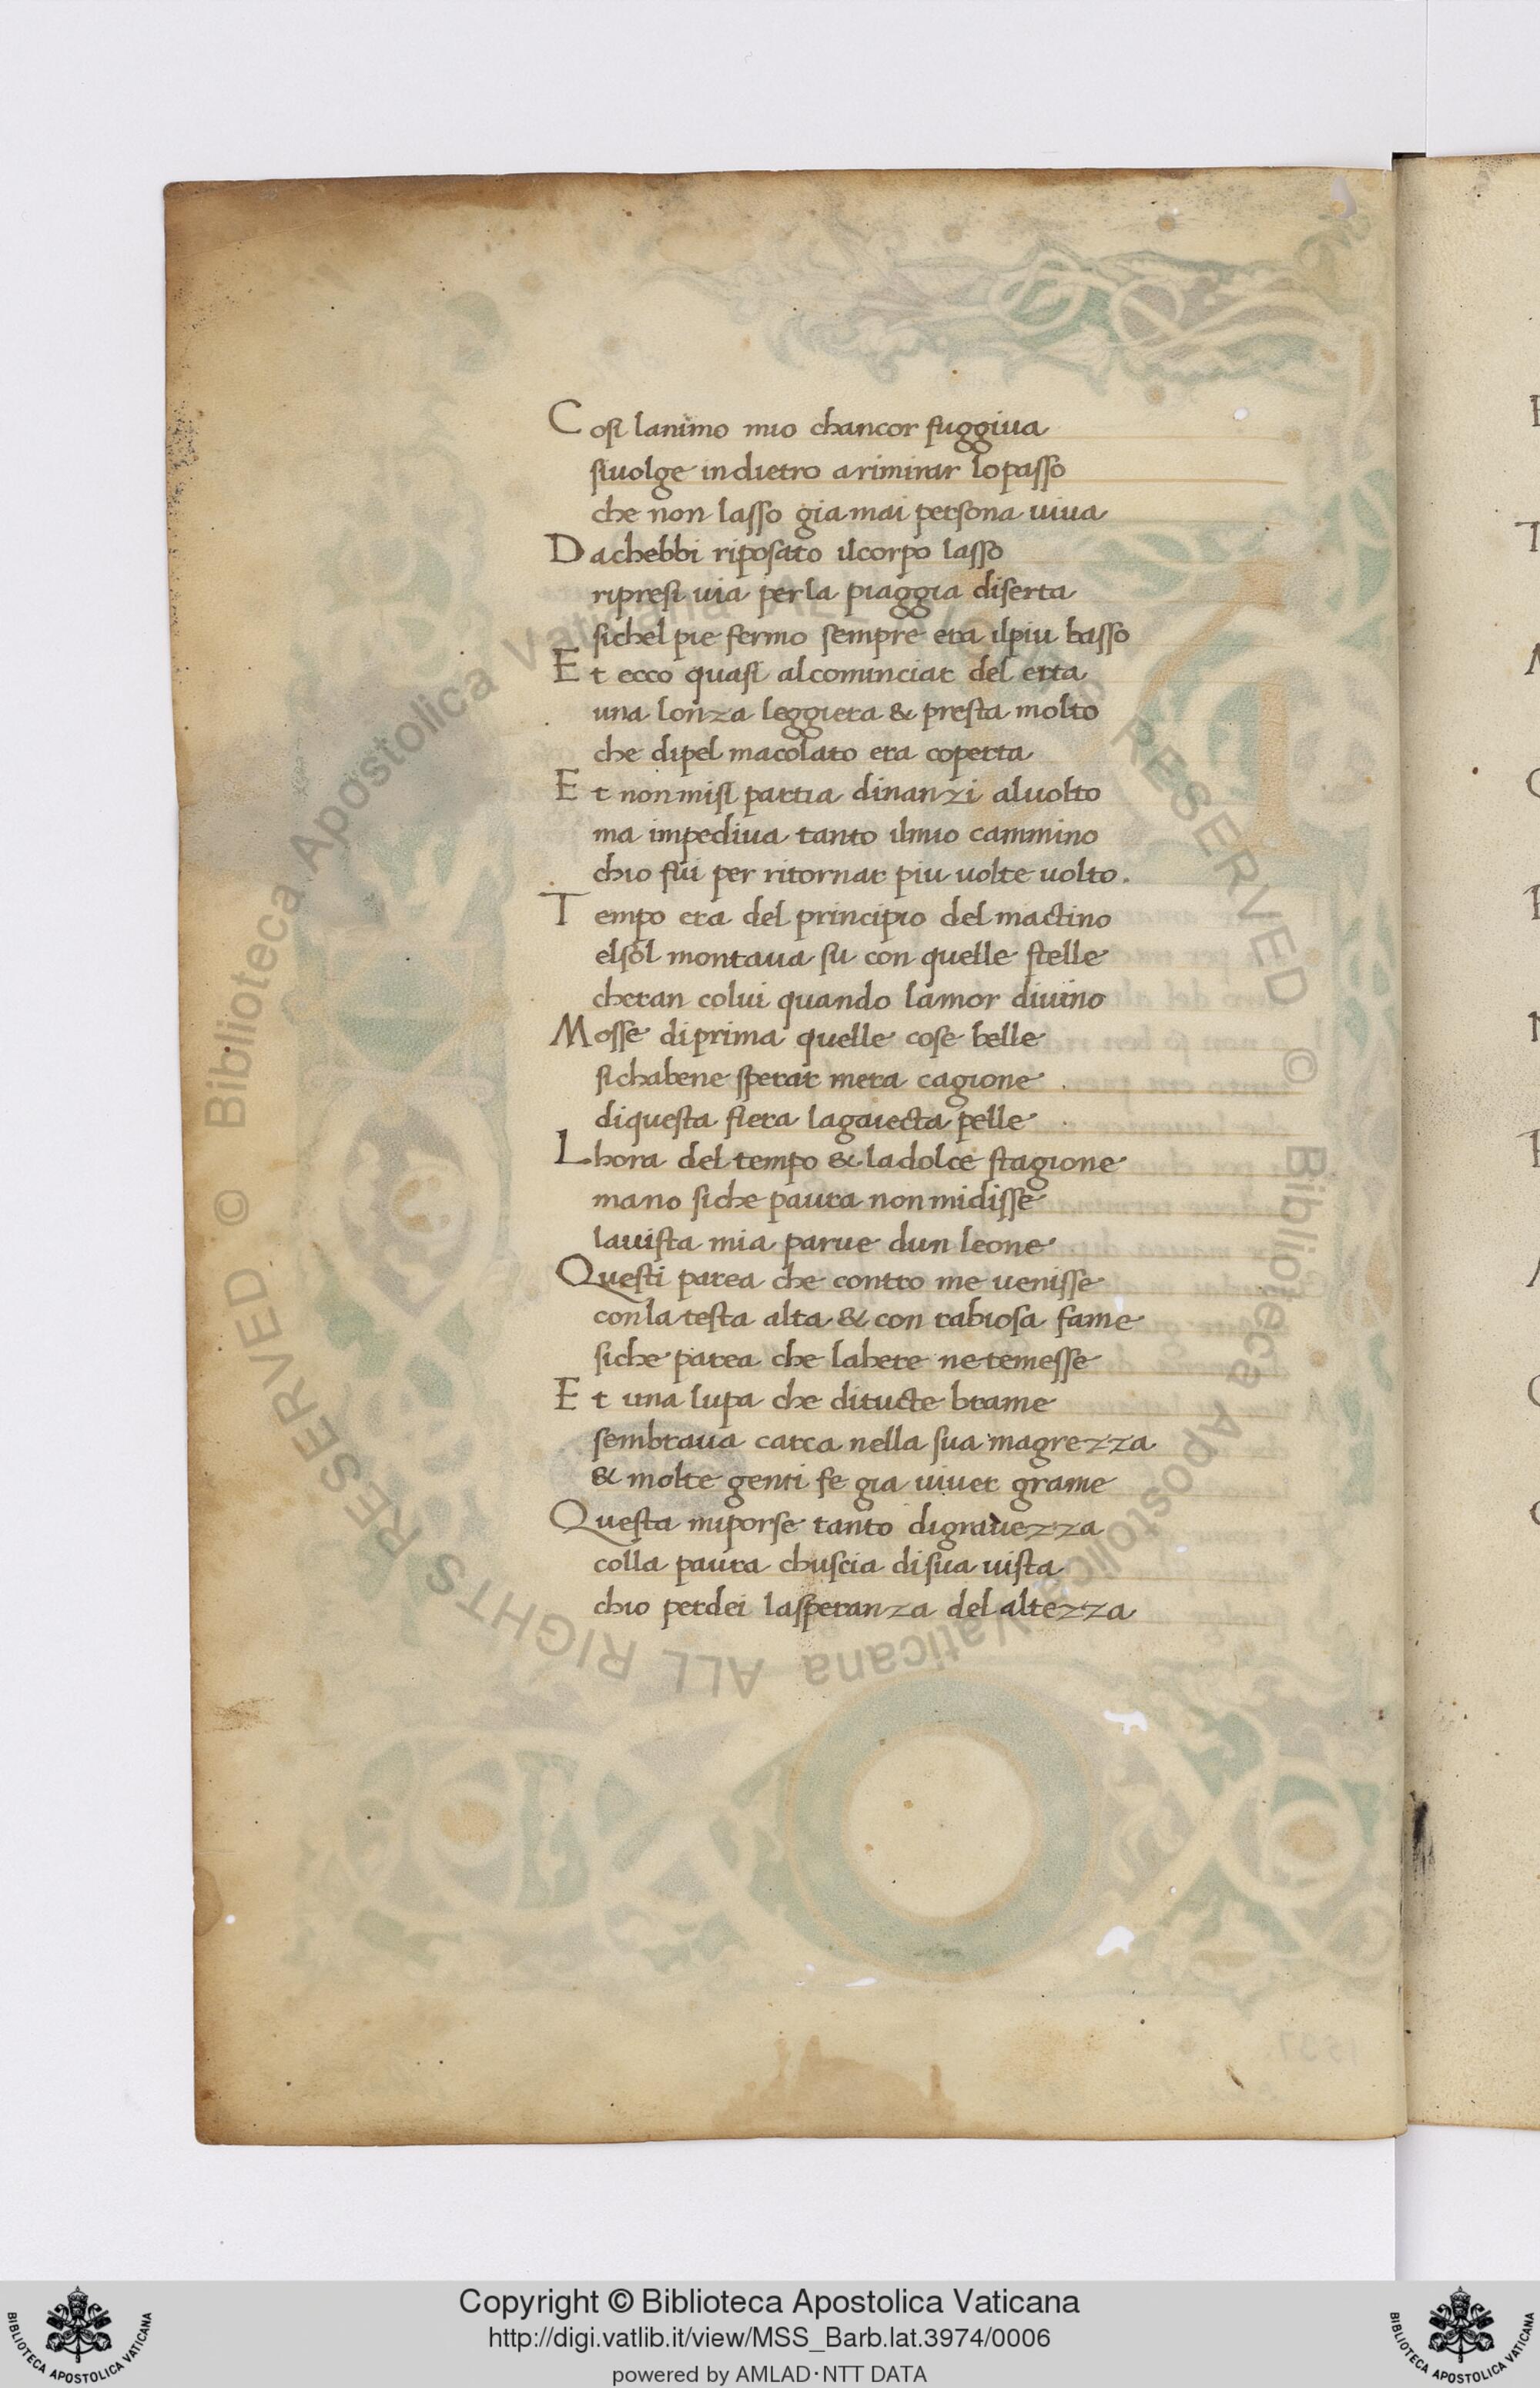 Cosi lanimo mio chancor fuggiua
siuolge indietro arimirar lopasso
che non lasso gia mai persona uiua
Dachebbi riposato ilcorpo lasso
ripresi uia perla piaggia diserta
sichel pie fermo sempre era ilpiu basso
Et ecco quasi alcominciar del erta
una lonza leggiera & presta molto
che dipel macolato era coperta
Et nonmisi partia dinanzi aluolto
ma impediua tanto ilmio cammino
chio fui per ritornar piu uolte uolto.
Tempo era del principio del mactino
elsol montaua su con quelle stelle
cheran colui quando lamor diuino
Mosse diprima quelle cose belle
sichabene sperar mera cagione
diquesta fiera lagaiecta pelle
Lhora del tempo & ladolce stagione
mano siche paura non midisse
lauista mia parue dun leone
Questi parea che contro me uenisse
conla testa alta & con rabiosa fame
siche parea che lahere netemesse
Et una lupa che ditucte brame
sembraua carca nella sua magrezza
& molte genti fe gia uiuer grame
Questa miporse tanto digrauezza
colla paura chuscia disua uista
chio perdei lasperanza del altezza
© Biblioteca Apostolica Vaticana ALL RIGHTS RESERVED
© Biblioteca Apostolica Vaticana ALL RIGHTS RESERVED
Copyright © Biblioteca Apostolica Vaticana
http://digi.vatlib.it/view/MSS_Barb.lat.3974/0006
powered by AMLAD·NTT DATA
BIBLIOTECA APOSTOLICA VATICANA
BIBLIOTECA APOSTOLICA VATICANA